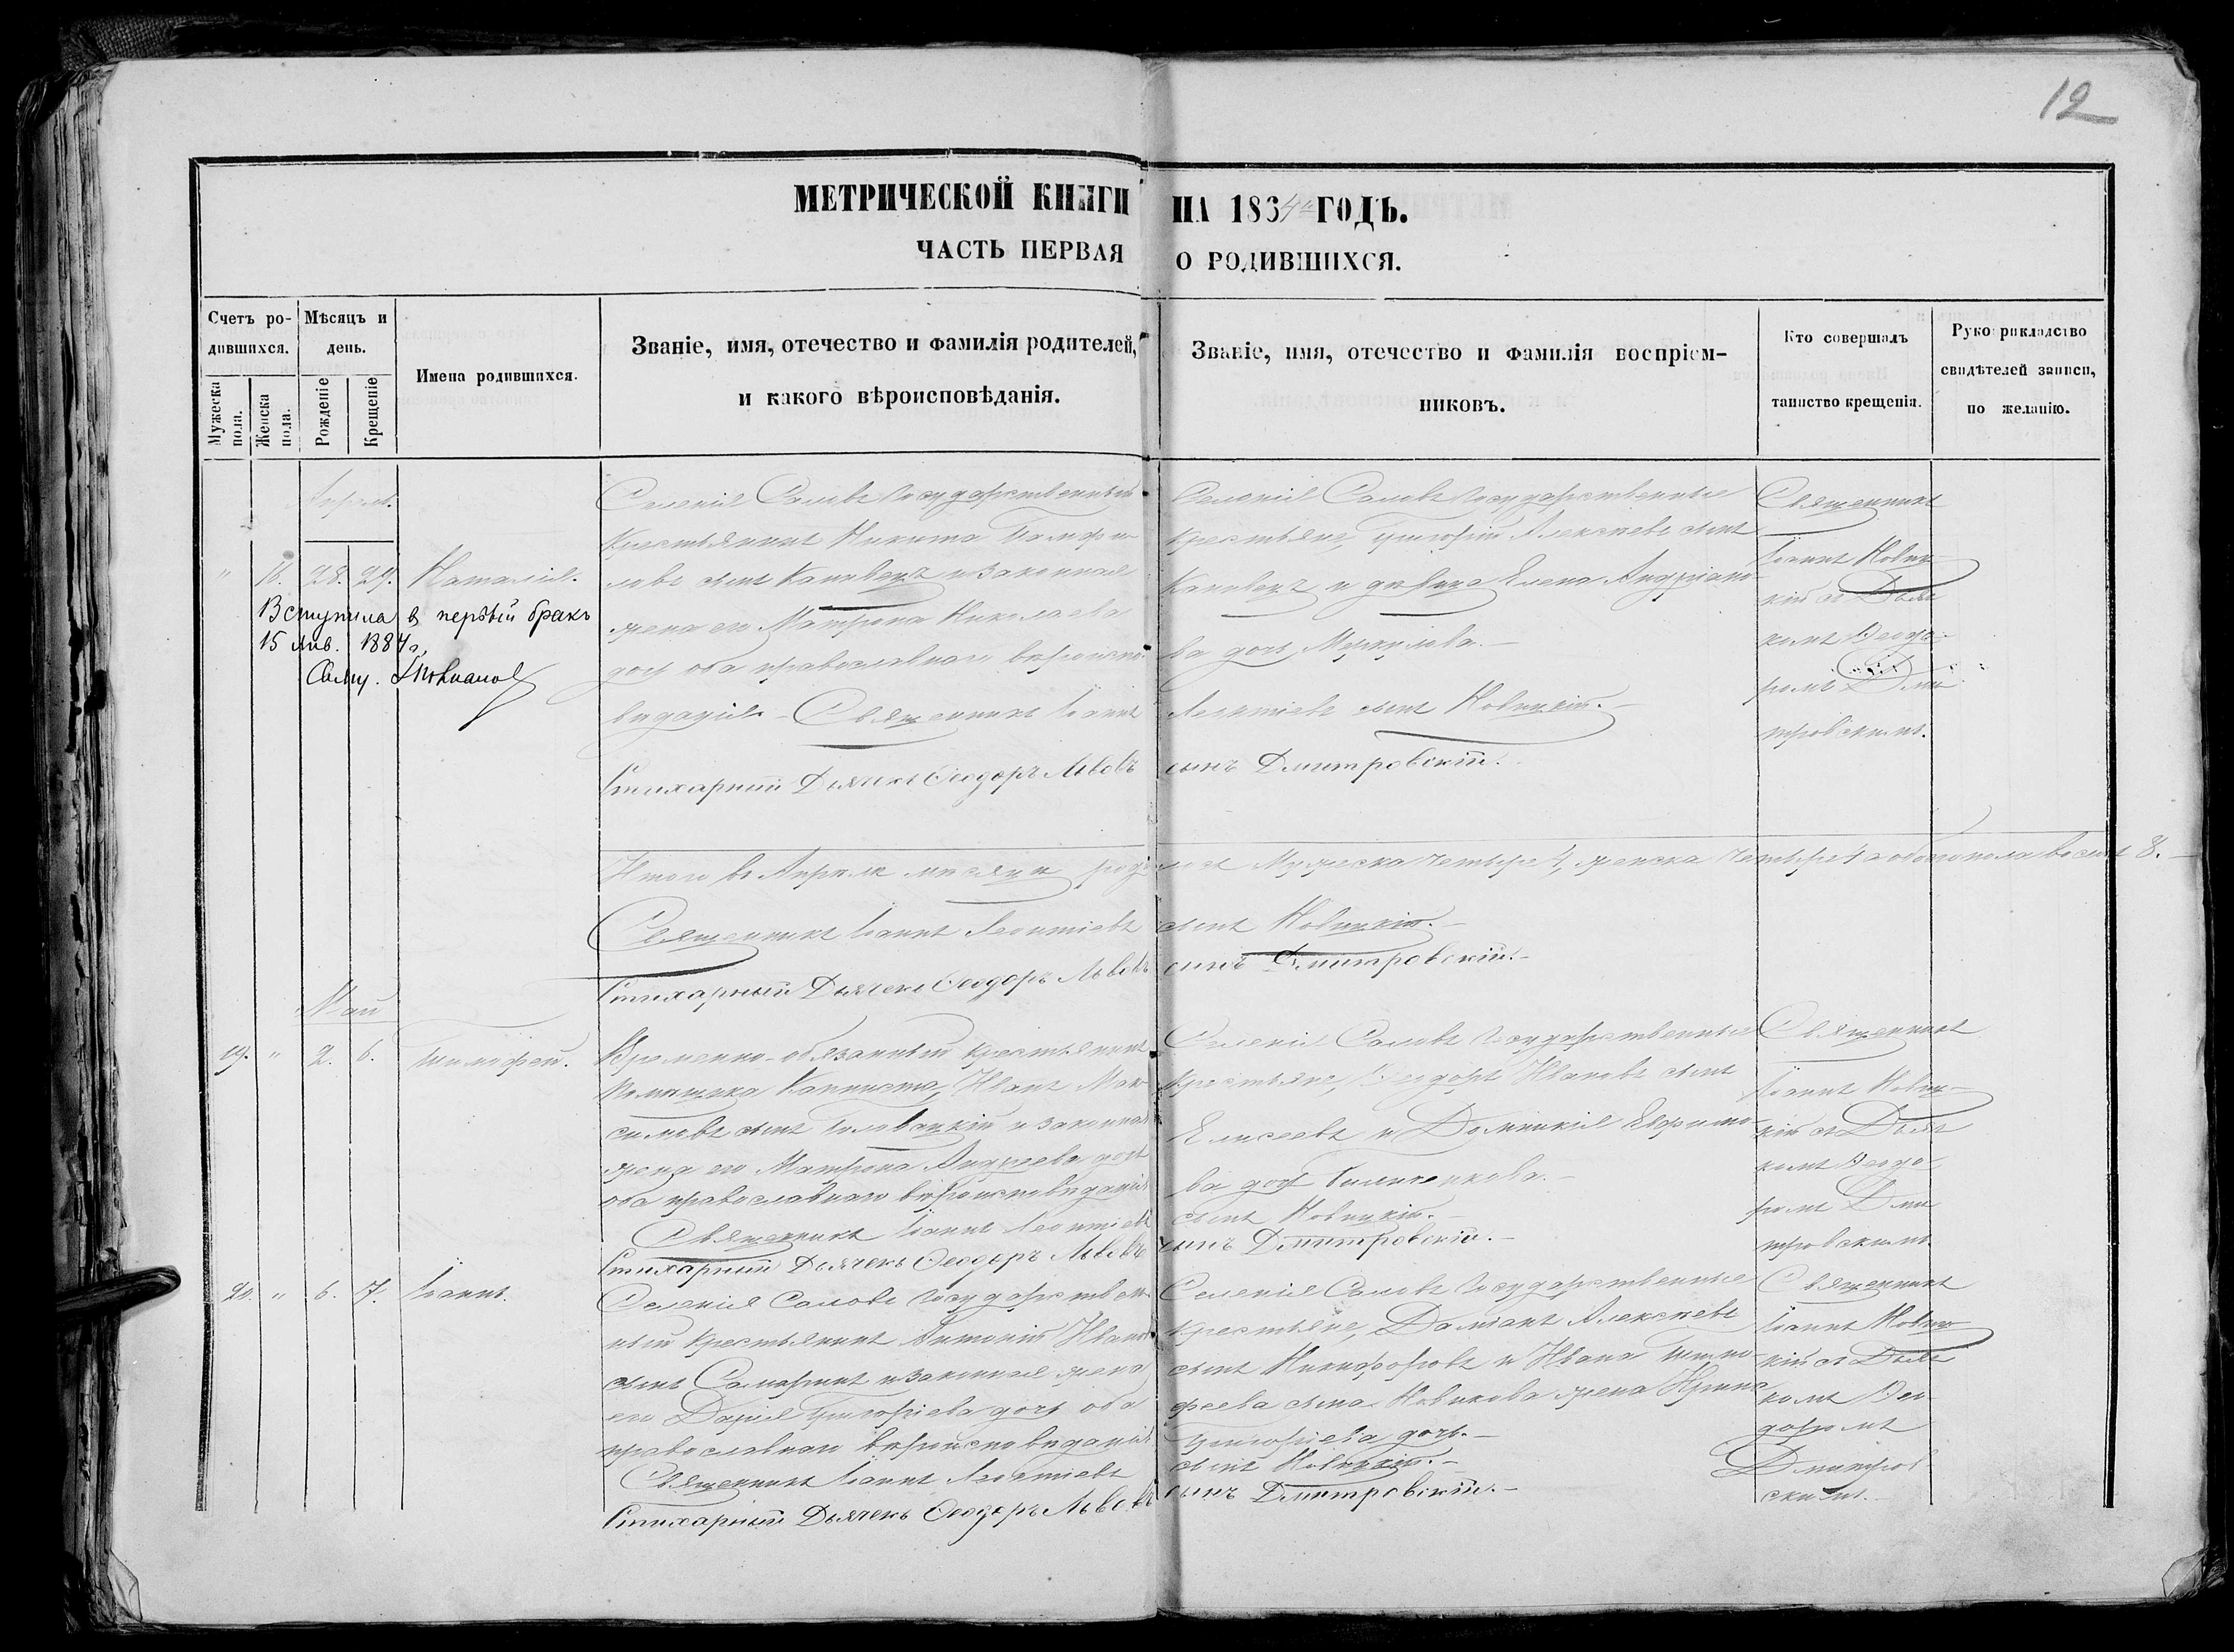 12
МЕТРИЧЕСКОЙ КНИГИ НА 1864й ГОДЪ.
ЧАСТЬ ПЕРВАЯ О РОДИВШИХСЯ.
Счетъ ро-
дившихся.
Мужеска пола.
Женска пола.
Мѣсяцъ и
день.
Рожденіе
Крещеніе
Имена родившихся.
Званіе, имя, отечество и фамилія родителей,
и какого вѣроисповѣданія.
Званіе, имя, отечество и фамилія воспріем-
никовъ.
Кто совершалъ
таинство крещенія.
Рукоприкладство
свидѣтелей записи,
по желанію.
Апрѣль.
" 16. 28. 29. Наталія.
Вступила в первый бракъ
15 янв. 1884 г.
Селенія Государственный
крестьянинъ Никита Памфи-
ловъ сынъ и законная
жена его Матрона Николаева
дочь оба православнаго вѣроиспо-
вѣданія. - Священникъ Іоаннъ
Стихарный Дьячекъ Ѳеодоръ Львовъ
Селенія Государственные
крестьяне, Григорій Алексѣевъ сынъ
и девица Елена Андріано-
ва дочь
Леонтіевъ сынъ Новицкій.-
сынъ Дмитровскій.
Священникъ
Іоаннъ Новиц-
кій съ Дьяч-
комъ Ѳеодо-
ромъ Дми-
тровскимъ.
Итого въ Апрѣлѣ мѣсяцѣ родилось Мужеска четыре 4, женска четыре 4 а обоего пола восемь 8.-
Священникъ Іоаннъ Леонтіевъ сынъ Новицкій.-
Стихарный Дьячекъ Ѳеодоръ Львовъ сынъ Дмитровскій.-
Май
19. " 2. 6. Тимофей.
Временно-обязанный крестьянинъ
помѣщика Капниста, Иванъ Мак-
симовъ сынъ и законная
жена его Матрона Андреева дочь
оба православнаго вѣроисповѣданія
Священникъ Іоаннъ Леонтіевъ
Стихарный Дьячекъ Ѳеодоръ Львовъ
Селенія Государственные
крестьяне, Ѳеодоръ Ивановъ сынъ
Елисеевъ и Домникія Ефимо-
ва дочь
сынъ Новицкій.-
сынъ Дмитровскій.-
Священникъ
Іоаннъ Новиц-
кій съ Дьяч-
комъ Ѳеодо-
ромъ Дми-
тровскимъ
20. " 6. 7. Іоаннъ.
Селенія Государствен-
ный крестьянинъ Антоній Ивановъ
сынъ и законная жена
его Дарія Григоріева дочь оба
православнаго вѣроисповѣданія
Священникъ Іоаннъ Леонтіевъ
Стихарный Дьячекъ Ѳеодоръ Львовъ
Селенія Государственные
крестьяне, Даміанъ Алексѣевъ
сынъ Никифоровъ и Ивана Тимо-
феева сына Новикова жена Ирина
Григоріева дочь.-
сынъ Новицкій.-
сынъ Дмитровскій.-
Священникъ
Іоаннъ Новиц-
кій съ Дьяч-
комъ Ѳео-
доромъ
Дмитров-
скимъ.-